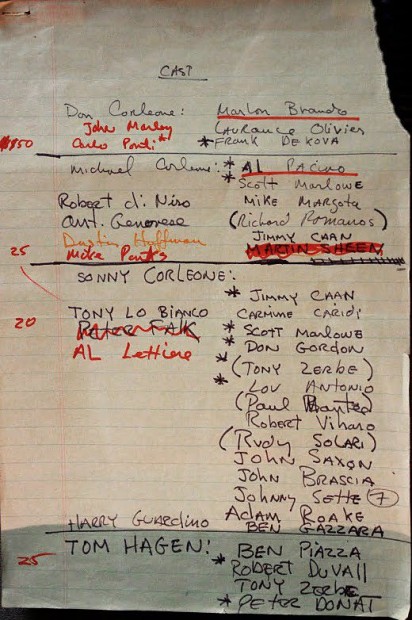 CAST
Don Corleone: Marlon Brando
John Marley Laurance Olivier
$150 Carlo Ponti * * FRANK DE KOVA
Michael Corleone: * AL PACINO
* Scott Marlowe
Robert di Niro Mike Margota
Ant. Genovese (Richard Romanos)
Dustin Hoffman JIMMY CAAN
25 Mike Parks MARTIN SHEEN
SONNY CORLEONE:
* JIMMY CAAN
TONY LO BIANCO CARMINE CARIDI
20 Peter FALK * Scott Marlowe
AL Lettiere * DON GORDON
* (TONY ZERBE)
* LOU ANTONIO
(Paul)
ROBERT Viharo
(RUDY SOLARI)
JOHN SAXON
John BRASCIA
Johnny SETTE (7)
Adam ROAKE
HARRY GUARDINO BEN GAZZARA
TOM HAGEN: BEN PIAZZA
25 * ROBERT DUVALL
TONY ZERBE
* PETER DONAT